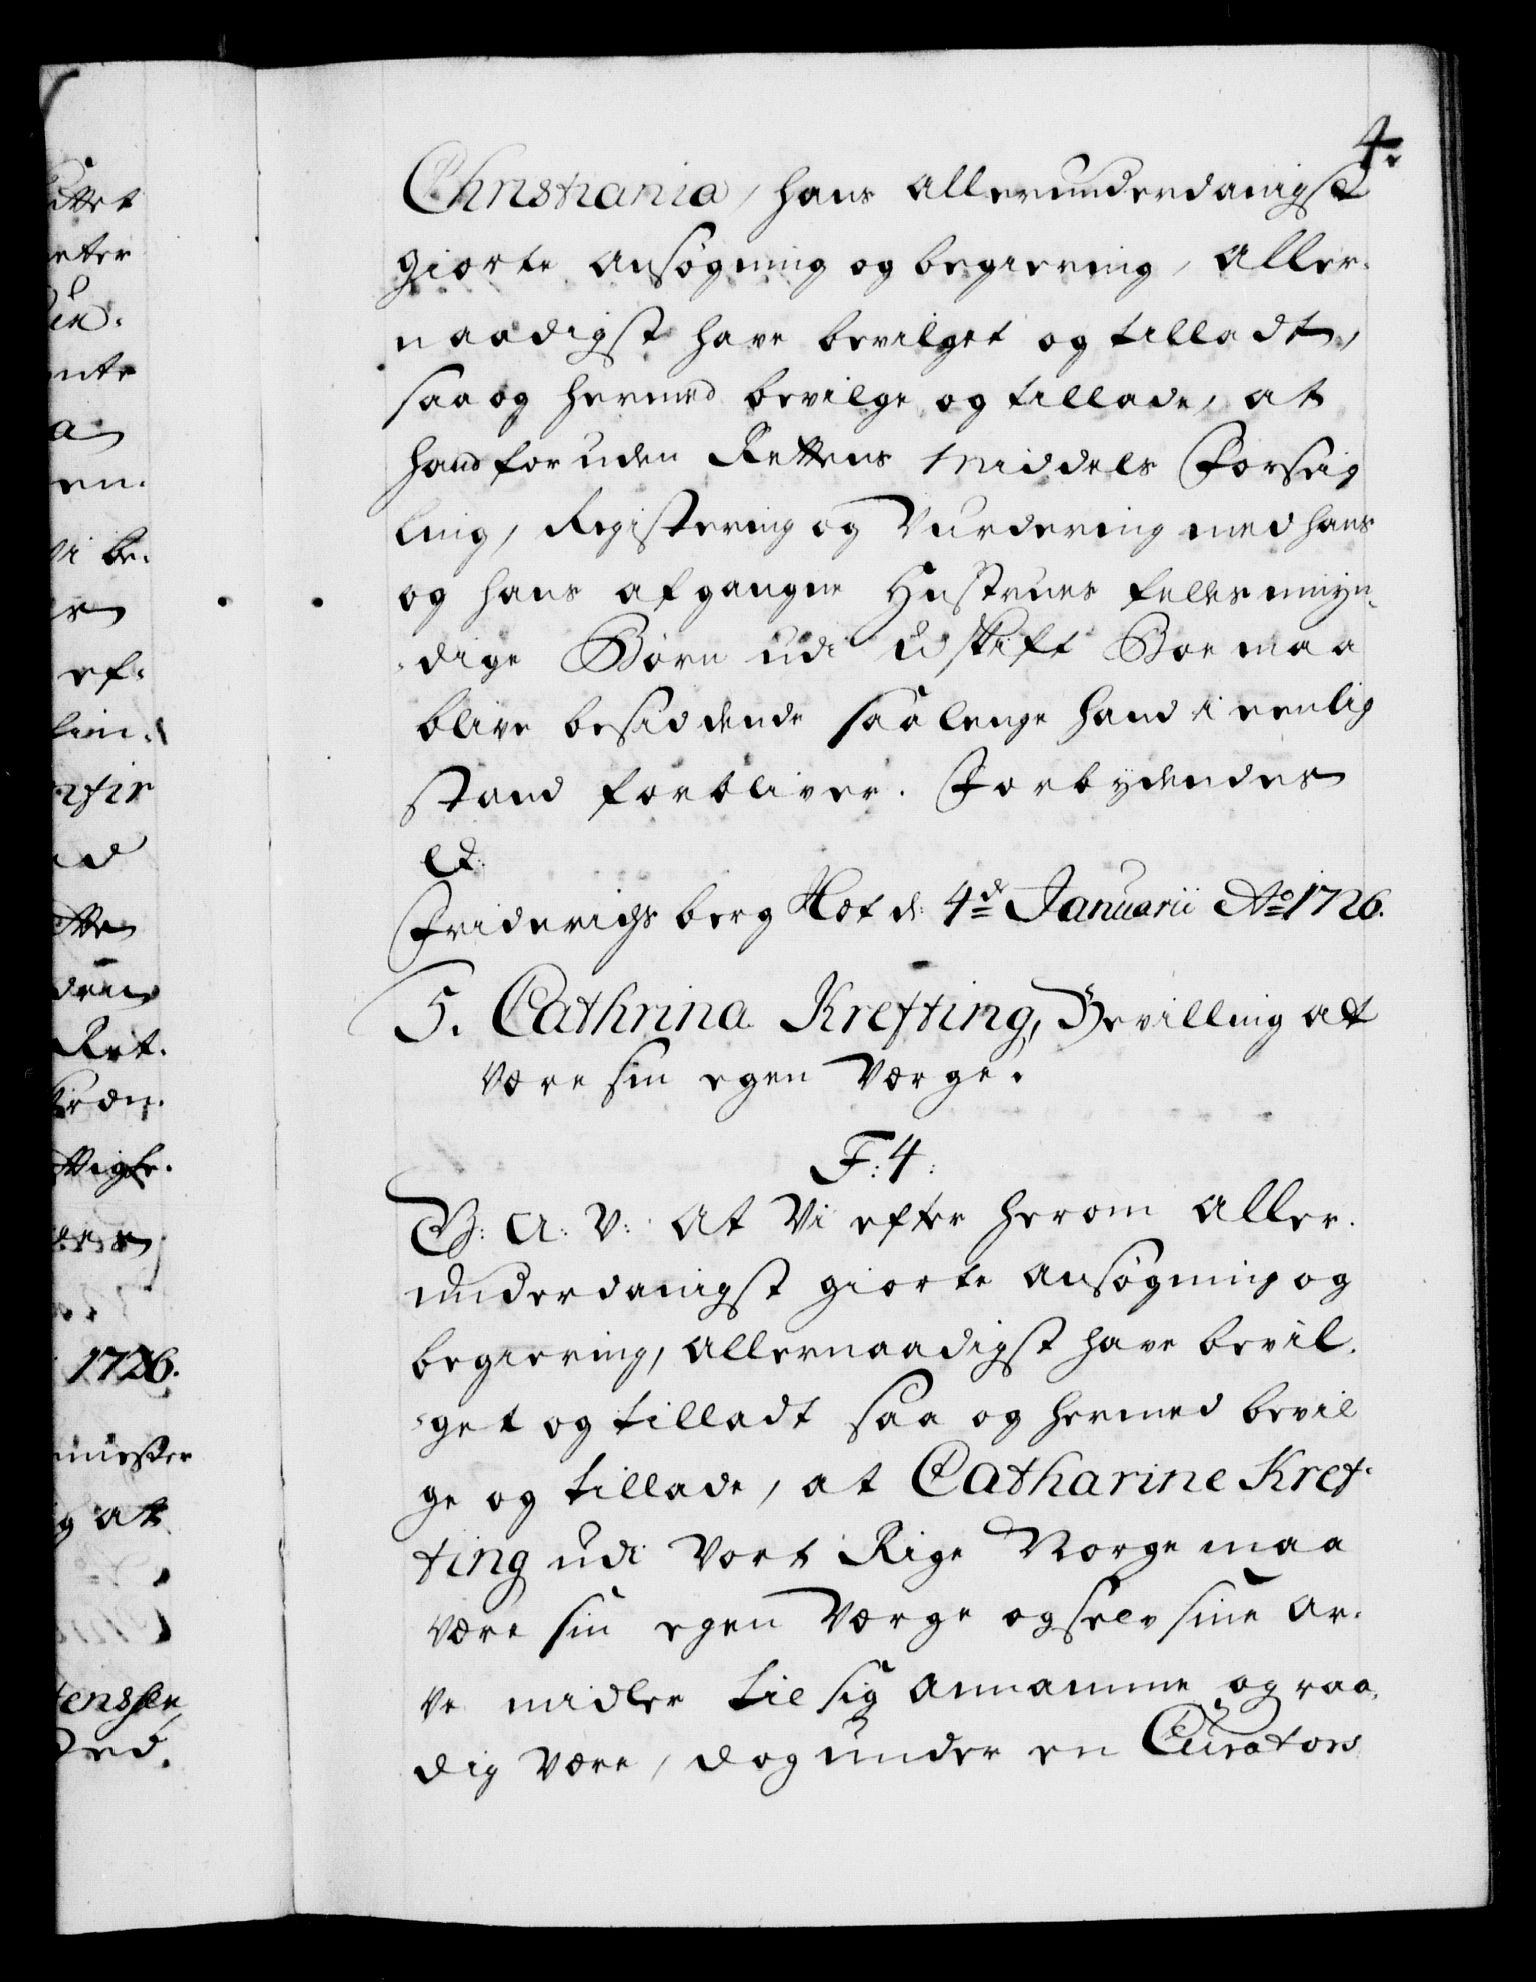 4.
Christiania, hans allerunderdanigst
giorte ansøgning og begiering, aller-
naadigst have bevilget og tilladt,
saa og hermed bevilge og tillade, at
hand for uden Rettens Middels Forseig
ling, Registering og Vurdering med hans
og hans afgangne Hustrues felles umÿn-
dige Børn udi uskift Boe maa
blive besiddende saa lenge hand i eenlig
stand forbliver. Forbÿdendes
&:
Friderichsberg Slot d: 4de Januarii Ao 1726.
5. Cathrina Krefting, Bevilling at
være sin egen Værge.
F: 4:
G: A: V: At Vi efter herom aller-
underdanigst giorte ansøgning og
begiering, allernaadigst have bevil-
get og tilladt saa og hermed bevil
ge og tillade, at Catharine Kref-
ting udi Vort Rige Norge maa
være sin egen Værge og selv sine Ar-
ve midler til sig annamme og raa-
dig være, dog under en Curators
uttet
nte
en.
Vi be.
ef-
Ret.
1726.
mester
g at